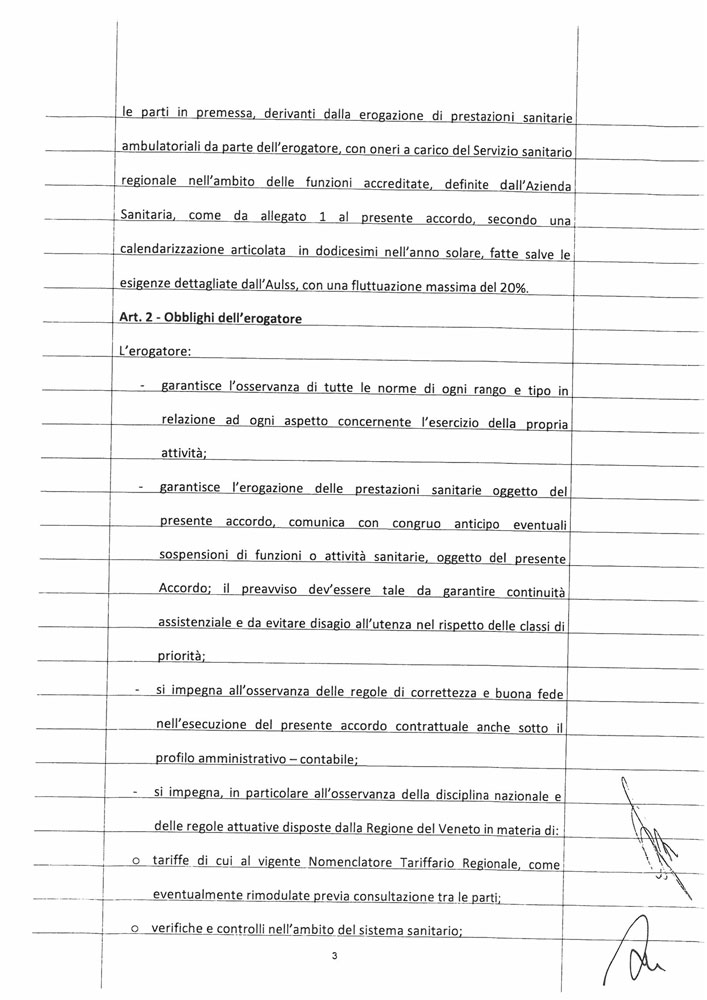 le parti in premessa, derivanti dalla erogazione di prestazioni sanitarie
ambulatoriali da parte dell'erogatore, con oneri a carico del Servizio sanitario
regionale nell'ambito delle funzioni accreditate, definite dall'Azienda
Sanitaria, come da allegato 1 al presente accordo, secondo una
calendarizzazione articolata in dodicesimi nell'anno solare, fatte salve le
esigenze dettagliate dall'Aulss, con una fluttuazione massima del 20%.
Art. 2 - Obblighi dell'erogatore
L'erogatore:
- garantisce l'osservanza di tutte le norme di ogni rango e tipo in
relazione ad ogni aspetto concernente l'esercizio della propria
attività;
- garantisce l'erogazione delle prestazioni sanitarie oggetto del
presente accordo, comunica con congruo anticipo eventuali
sospensioni di funzioni o attività sanitarie, oggetto del presente
Accordo; il preavviso dev'essere tale da garantire continuità
assistenziale e da evitare disagio all'utenza nel rispetto delle classi di
priorità;
- si impegna all'osservanza delle regole di correttezza e buona fede
nell'esecuzione del presente accordo contrattuale anche sotto il
profilo amministrativo – contabile;
- si impegna, in particolare all'osservanza della disciplina nazionale e
delle regole attuative disposte dalla Regione del Veneto in materia di:
o tariffe di cui al vigente Nomenclatore Tariffario Regionale, come
eventualmente rimodulate previa consultazione tra le parti;
o verifiche e controlli nell'ambito del sistema sanitario;
3